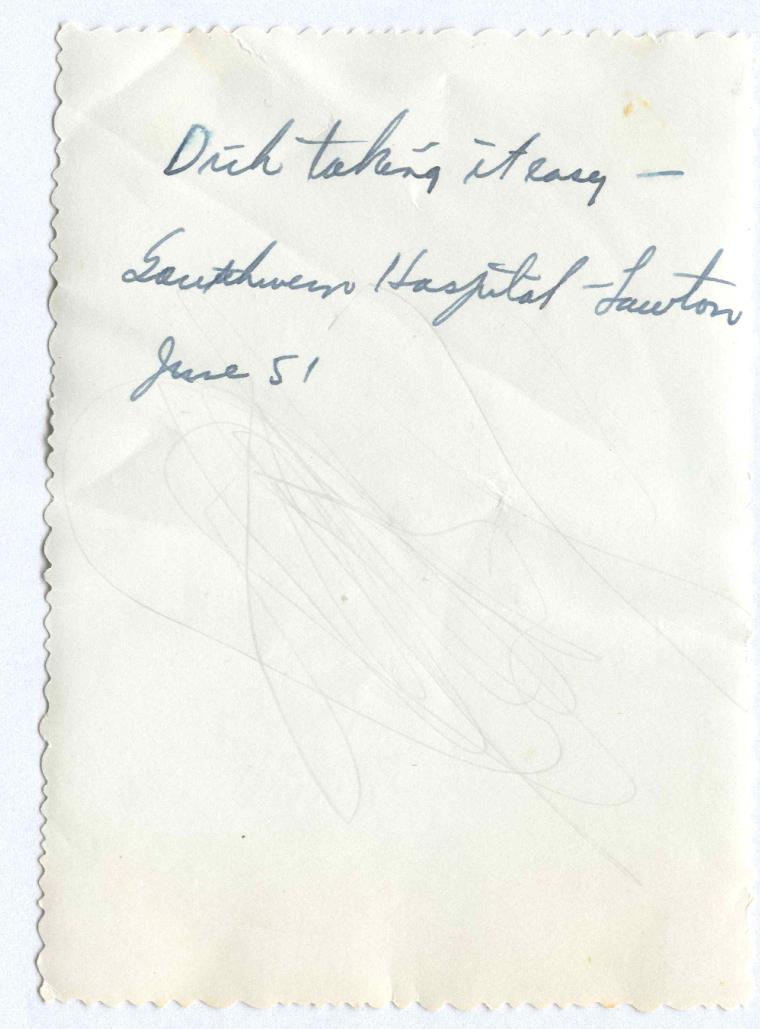 Dick taking it easy —
Southwern Hospital - Lawton
June 51